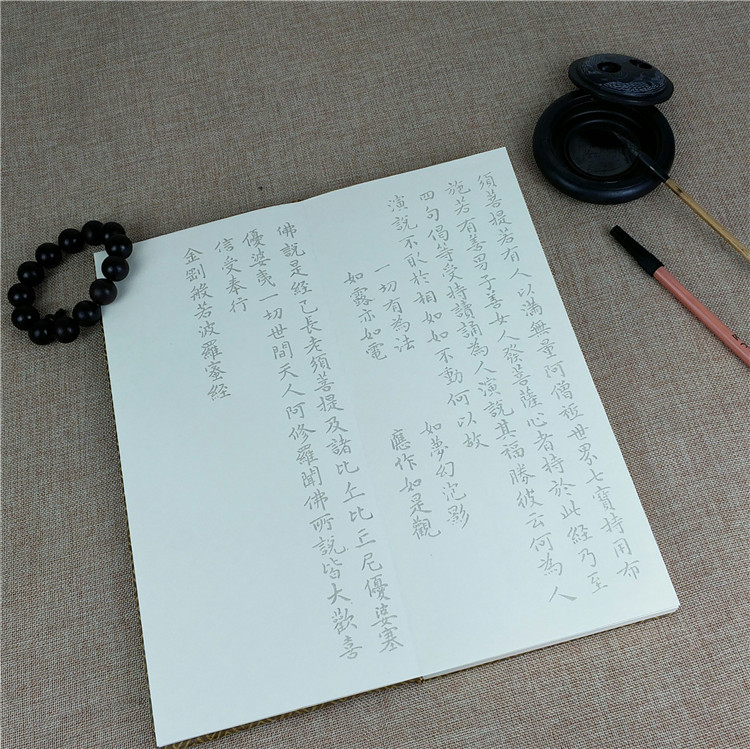 須菩提若有人以滿無量阿僧祇世界七寶持用布
施若有善男子善女人發菩薩心者持於此經乃至
四句偈等受持讀誦為人演說其福勝彼云何為人
演說不取於相如如不動何以故
一切有為法 如夢幻泡影
如露亦如電 應作如是觀
佛說是經已長老須菩提及諸比丘比丘尼優婆塞
優婆夷一切世間天人阿修羅聞佛所說皆大歡喜
信受奉行
金剛般若波羅蜜經